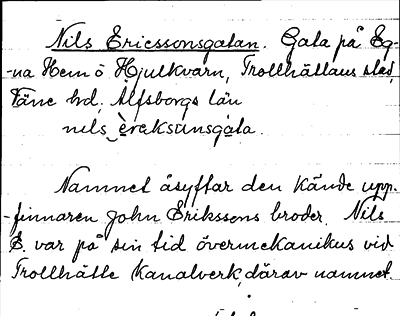 Nils Ericssonsgatan. Gata på Eg-
-na Hem ö Hjulkvarn, Trollhättans stad,
Väne hd, Älfsborgs län
nils èreksùnsgàta.
Namnet åsyftar den kände upp-
-finnaren John Erikssons broder. Nils
E. var på sin tid övermekanikus vid
Trollhätte Kanalverk, därav namnet.